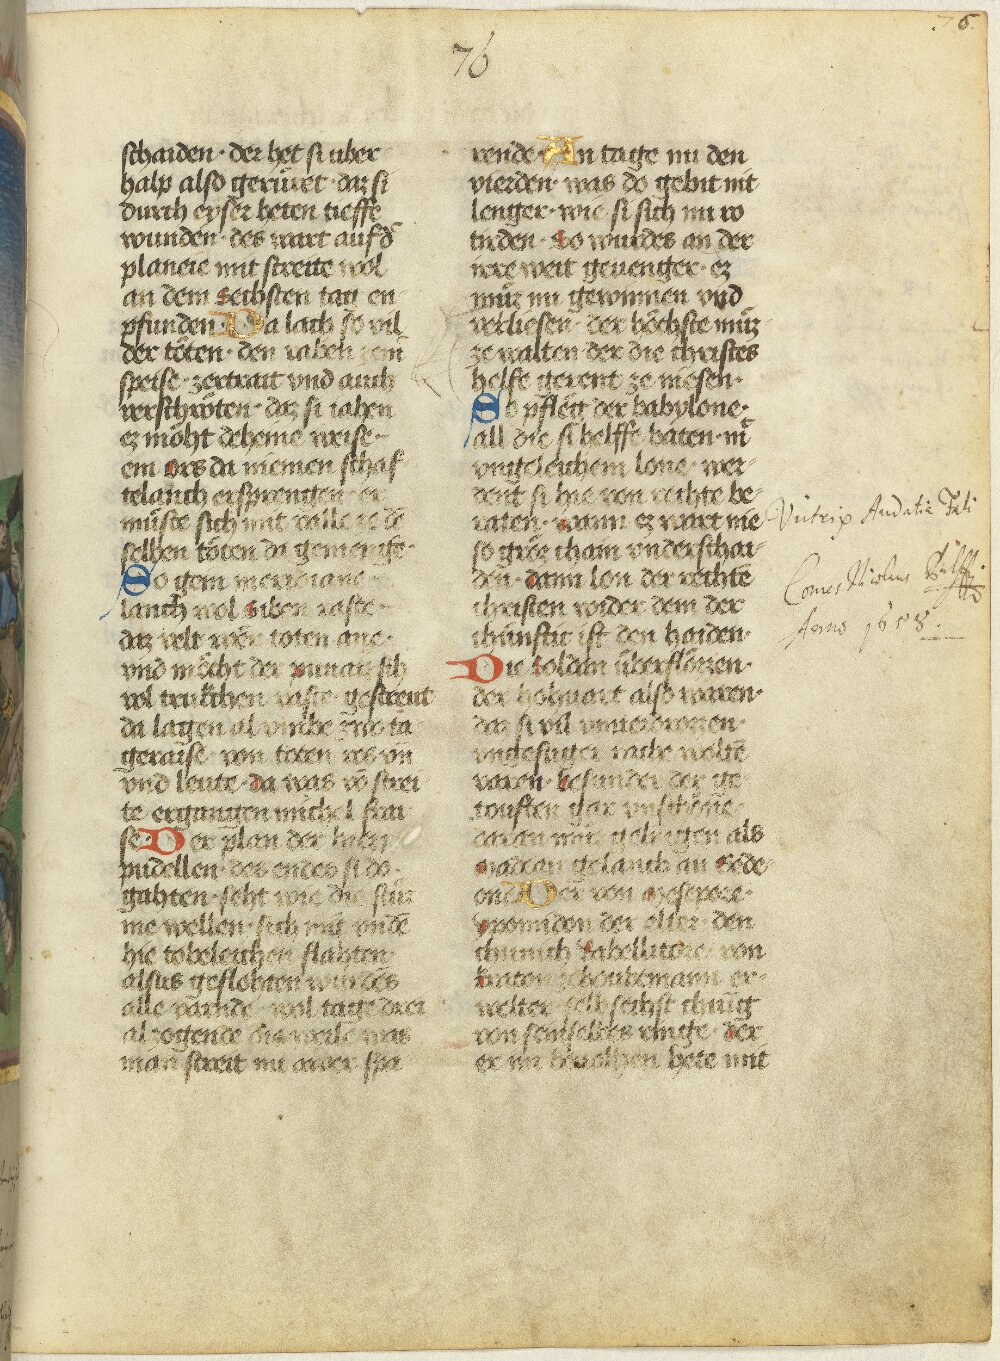 76
76.
schaiden · der het si uber
halp also gerüret · daz si
durch eyser heten tieffe
wunden · des wart auf d̄
planeie mit streite wol
an dem sechsten tag en
pfunden · Da lach so vil
der töten · den raben zem
speise · zertrait vnd auch
verschröten · daz si iahen
ez möht deheine weise
em ors da niemen schaf
telanch ersprengen · er
müste sich mit valle ze dē
selben töten da gemenge ·
So gem meridiane
lanch wol siben raste ·
daz velt wer toten ane ·
vnd möcht der
vol trukchen vaste gestreut
da lagen al vmbe
geraise von toten ros vn̄
vnd leute · da was vō strei
te ergangen michel frai
se · Der plan der
pudellen · des endes si do
gahten · seht wie die stür
me wellen · sich mit vnde
hie tobeleichen slahten
alsus geflohten wurdens
alle · wol tage drei
al zogende die weile was
man streit mi aver spa
rende · An tage mi den
vierden · was do gebit nit
lenger · wie si sich mi vo
irden · so wurdes an der
irre weit geuenger · ez
müz mi gewinnen vnd
verliesen · der höchste müz
ze walten der die christes
helfe gerent ze niesen ·
So pfleg der babylone ·
all die si helffe baten · mit
vngeleichem lone · wer
dent si hie von rechte be
raten · wann ez wart nie
so gröz chain vnderschai
den · dann lon der rechtē
christen wider dem der
chünftig ist den haiden ·
Die soldan überflözzen ·
der hohuart also waren ·
daz si vil vnuerdrozzen ·
vngefüger rache woltē
varen · besunder der ge
tousten gar vnschöne ·
daran mir gelingen als
gelauch an
Der von
ypomidon der eller · den
chunich von
er
welter selb sechst chung
von sein selbes
er mi beuolhen hete mit
Victrix Audatia Fati
Comes
Anno 1658.